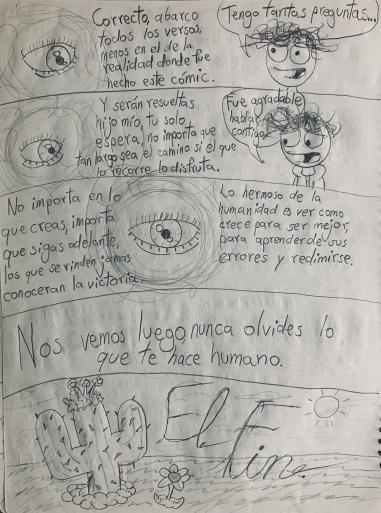 Correcto, abarco
todos los versos,
menos en el de la
realidad donde fue
hecho este cómic.
Tengo tantas preguntas...
Y serán resueltas
hijo mío, tu solo
espera, no importa que
tan largo sea el camino si el que
lo recorre lo disfruta.
Fue agradable
hablar
contigo
No importa en lo
que creas, importa
que sigas adelante,
los que se rinden jamas
conoceran la victoria.
Lo hermoso de la
humanidad es ver como
crece para ser mejor,
para aprender de sus
errores y redimirse.
Nos vemos luego, nunca olvides lo
que te hace humano.
El
Fine